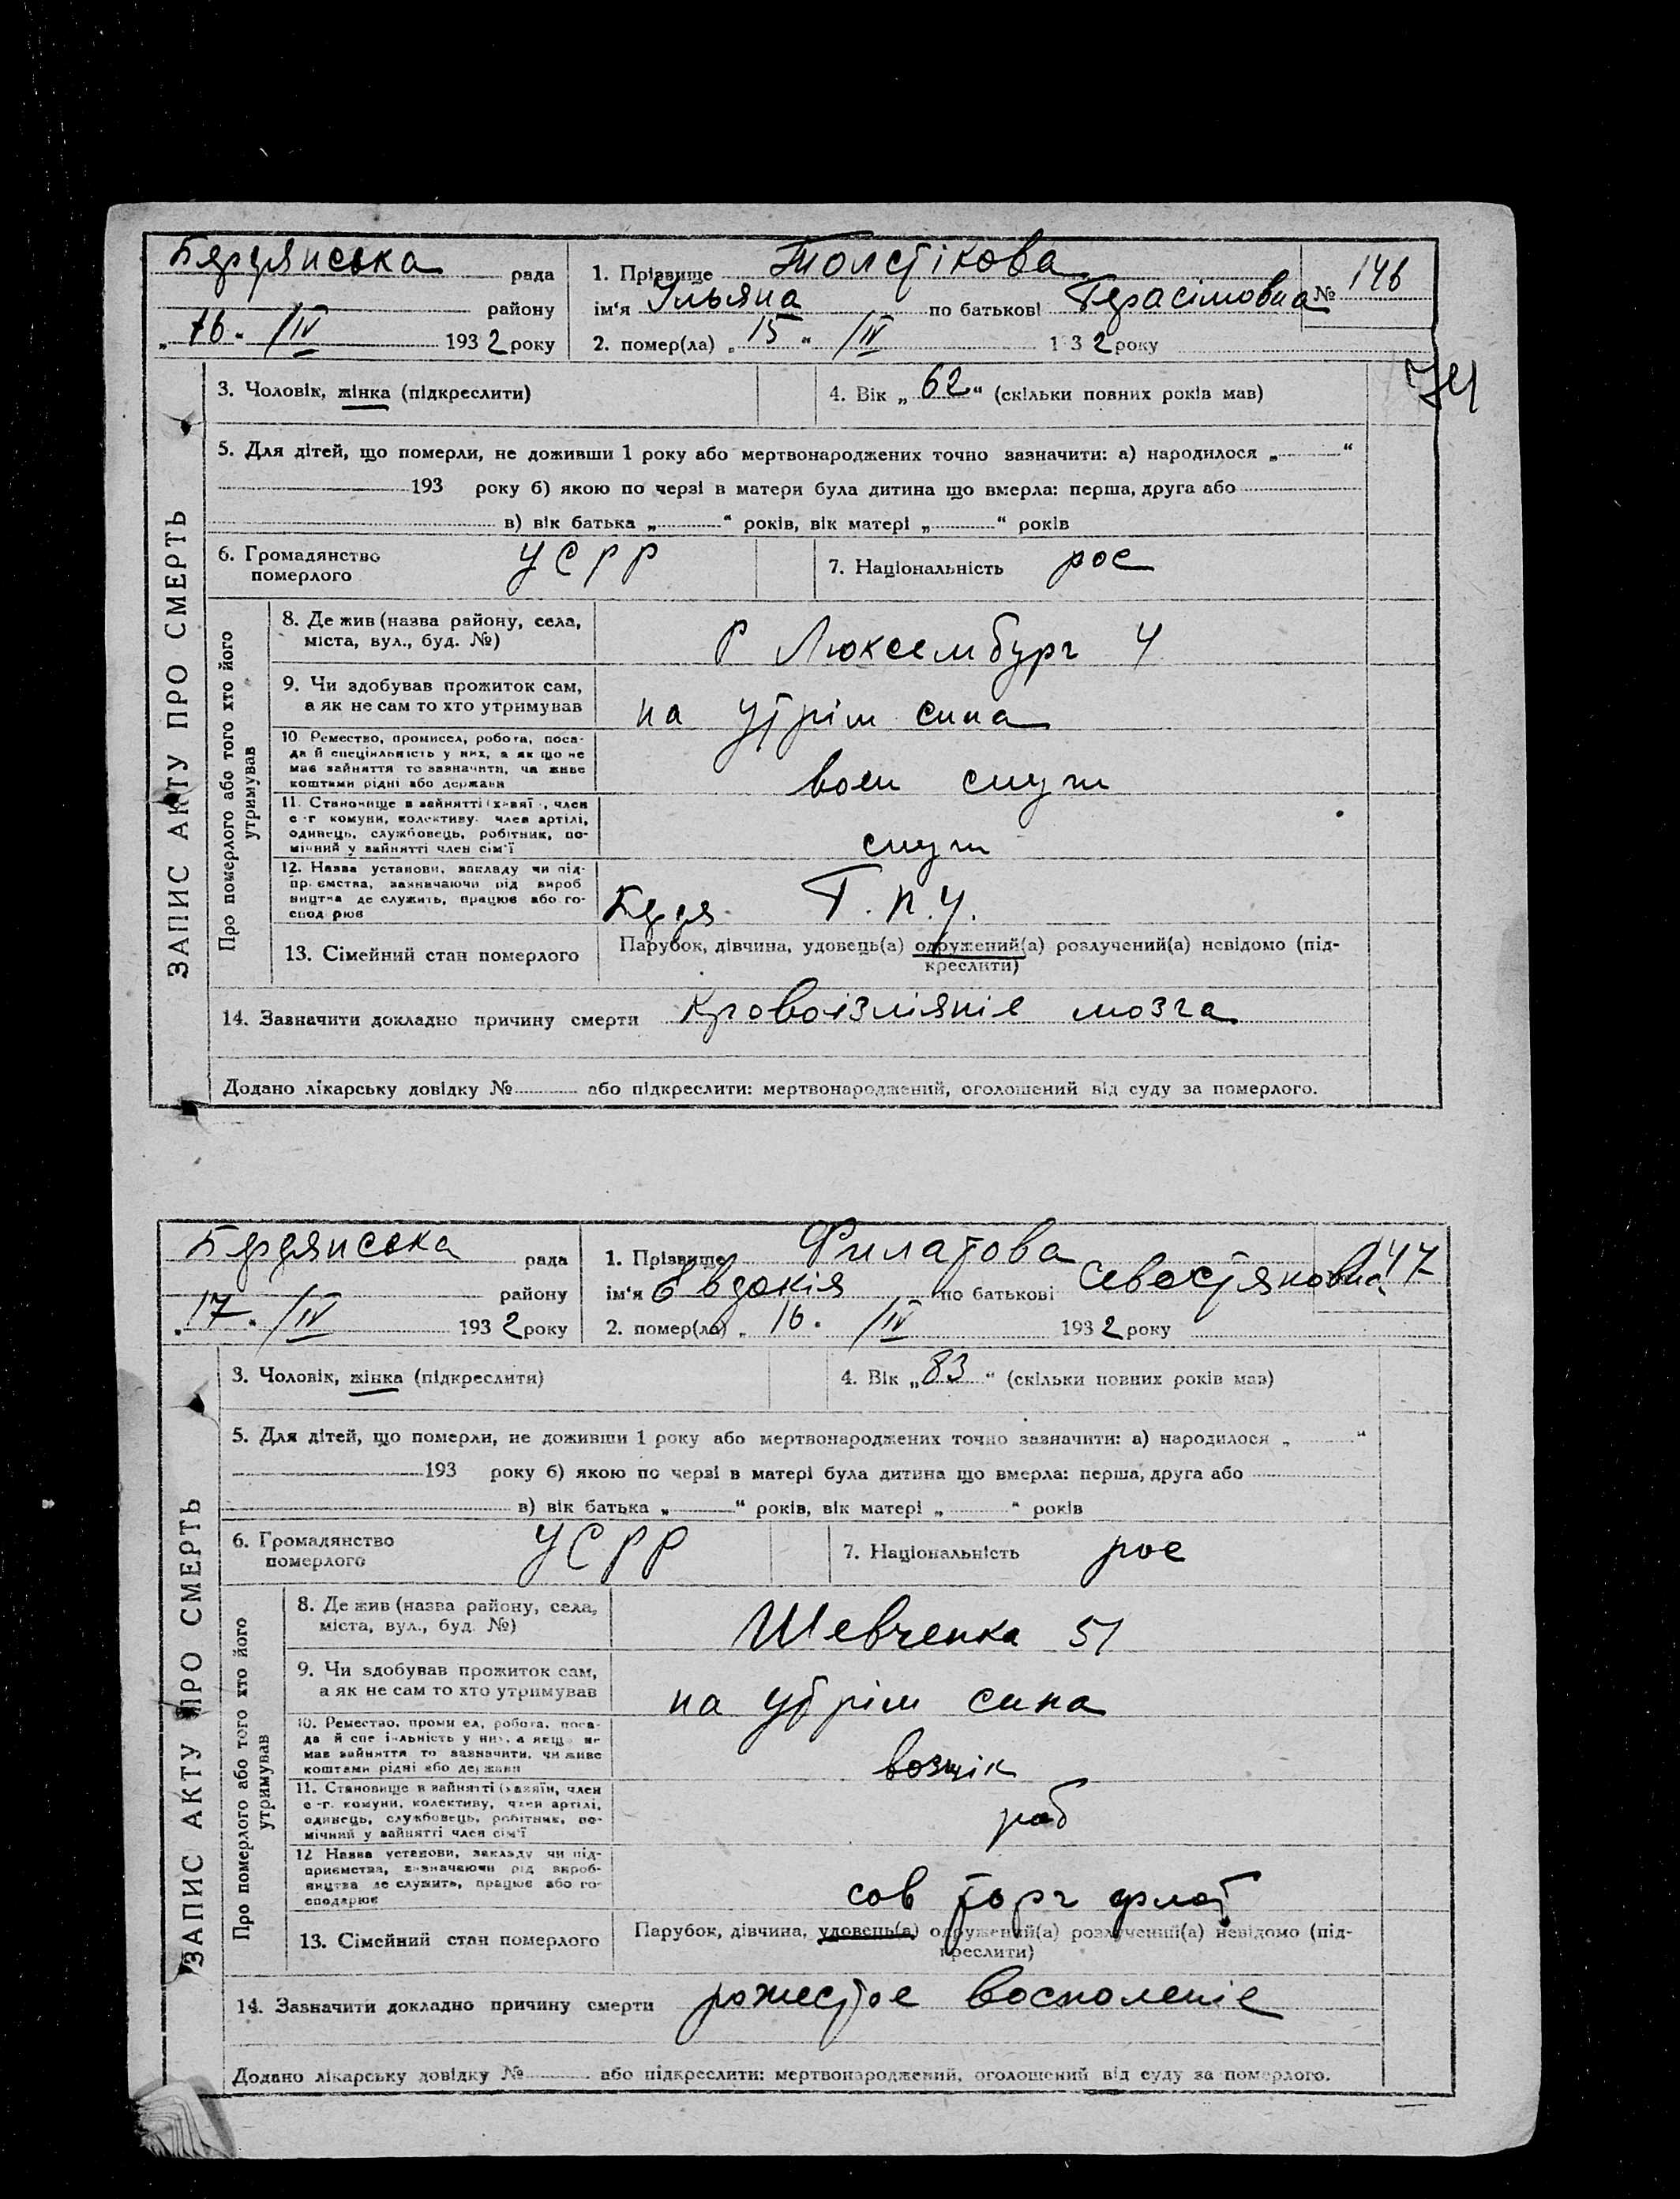 Бердянська рада
1. Прізвище Толстікова
№ 146
району
ім'я Ульяна по батькові Герасімовна
„ 16 " /IV 1932 року
2. помер(ла) „ 15 " /IV 1932 року
74
ЗАПИС АКТУ ПРО СМЕРТЬ
3. Чоловік, жінка (підкреслити)
4. Вік „ 62 " (скільки повних років мав)
5. Для дітей, що померли, не доживши 1 року або мертвонароджених точно зазначити: а) народилося „ "
193 року б) якою по черзі в матери була дитина що вмерла: перша, друга або
в) вік батька „ " років, вік матері „ " років
6. Громадянство померлого УСРР
7. Національність рос
Про померлого або того хто його утримував
8. Де жив (назва району, села,
міста, вул., буд. №)
Р Люксембург 4
9. Чи здобував прожиток сам,
а як не сам то хто утримував
на утрім сина
10 Ремество, промисел, робота, поса-
да й спеціяльність у них, а як що не
має зайняття то зазначити, чи живе
коштами рідні або держави
воен служ
11. Становище в зайнятті (хазяї , член
с-г комуни, колективу. член артілі,
одинець, службовець, робітник, по-
мічний у зайнятті член сім'ї
служ
12. Назва установи, закладу чи під-
пр ємства, зазначаючи рід вироб
ництва де служить, працює або го-
спод рює
Берд Г.П.У.
13. Сімейний стан померлого
Парубок, дівчина, удовець(а) одружений(а) розлучений(а) невідомо (під-
креслити)
14. Зазначити докладно причину смерти Кровоізліяніе мозга
Додано лікарську довідку № або підкреслити: мертвонароджений, оголошений від суду за померлого.
Бердянська рада
1. Прізвище Филатова
147
району
ім'я Євдокія по батькові Севостяновна
„ 17 " /IV 1932 року
2. помер(ла) „ 16 " /IV 1932 року
ЗАПИС АКТУ ПРО СМЕРТЬ
3. Чоловік, жінка (підкреслити)
4. Вік „ 83 " (скільки повних років мав)
5. Для дітей, що померли, не доживши 1 року або мертвонароджених точно зазначити: а) народилося „ "
193 року б) якою по черзі в матері була дитина що вмерла: перша, друга або
в) вік батька „ " років, вік матері „ " років
6. Громадянство померлого УСРР
7. Національність рос
Про померлого або того хто його утримував
8. Де жив (назва району, села,
міста, вул., буд. №)
Шевченка 51
9. Чи здобував прожиток сам,
а як не сам то хто утримував
на утрім сина
10. Ремество, проми ел, робота, поса-
да й спе іяльність у них, а якщо не
має зайняття то зазначити, чи живе
коштами рідні або держави
возщік
11. Становище в зайнятті (хазяїн, член
с-г. комуни, колективу, член артілі,
одинець, службовець, робітник, по-
мічний у зайнятті член сім'ї
роб
12 Назва установи, закладу чи під-
приємства, зазначаючи рід вироб-
ництва де служить, працює або го-
сподарює
сов торг флот
13. Сімейний стан померлого
Парубок, дівчина, удовець(а) одружений(а) розлучений(а) невідомо (під-
креслити)
14. Зазначити докладно причину смерти рожестое восполеніе
Додано лікарську довідку № або підкреслити: мертвонароджений, оголошений від суду за померлого.